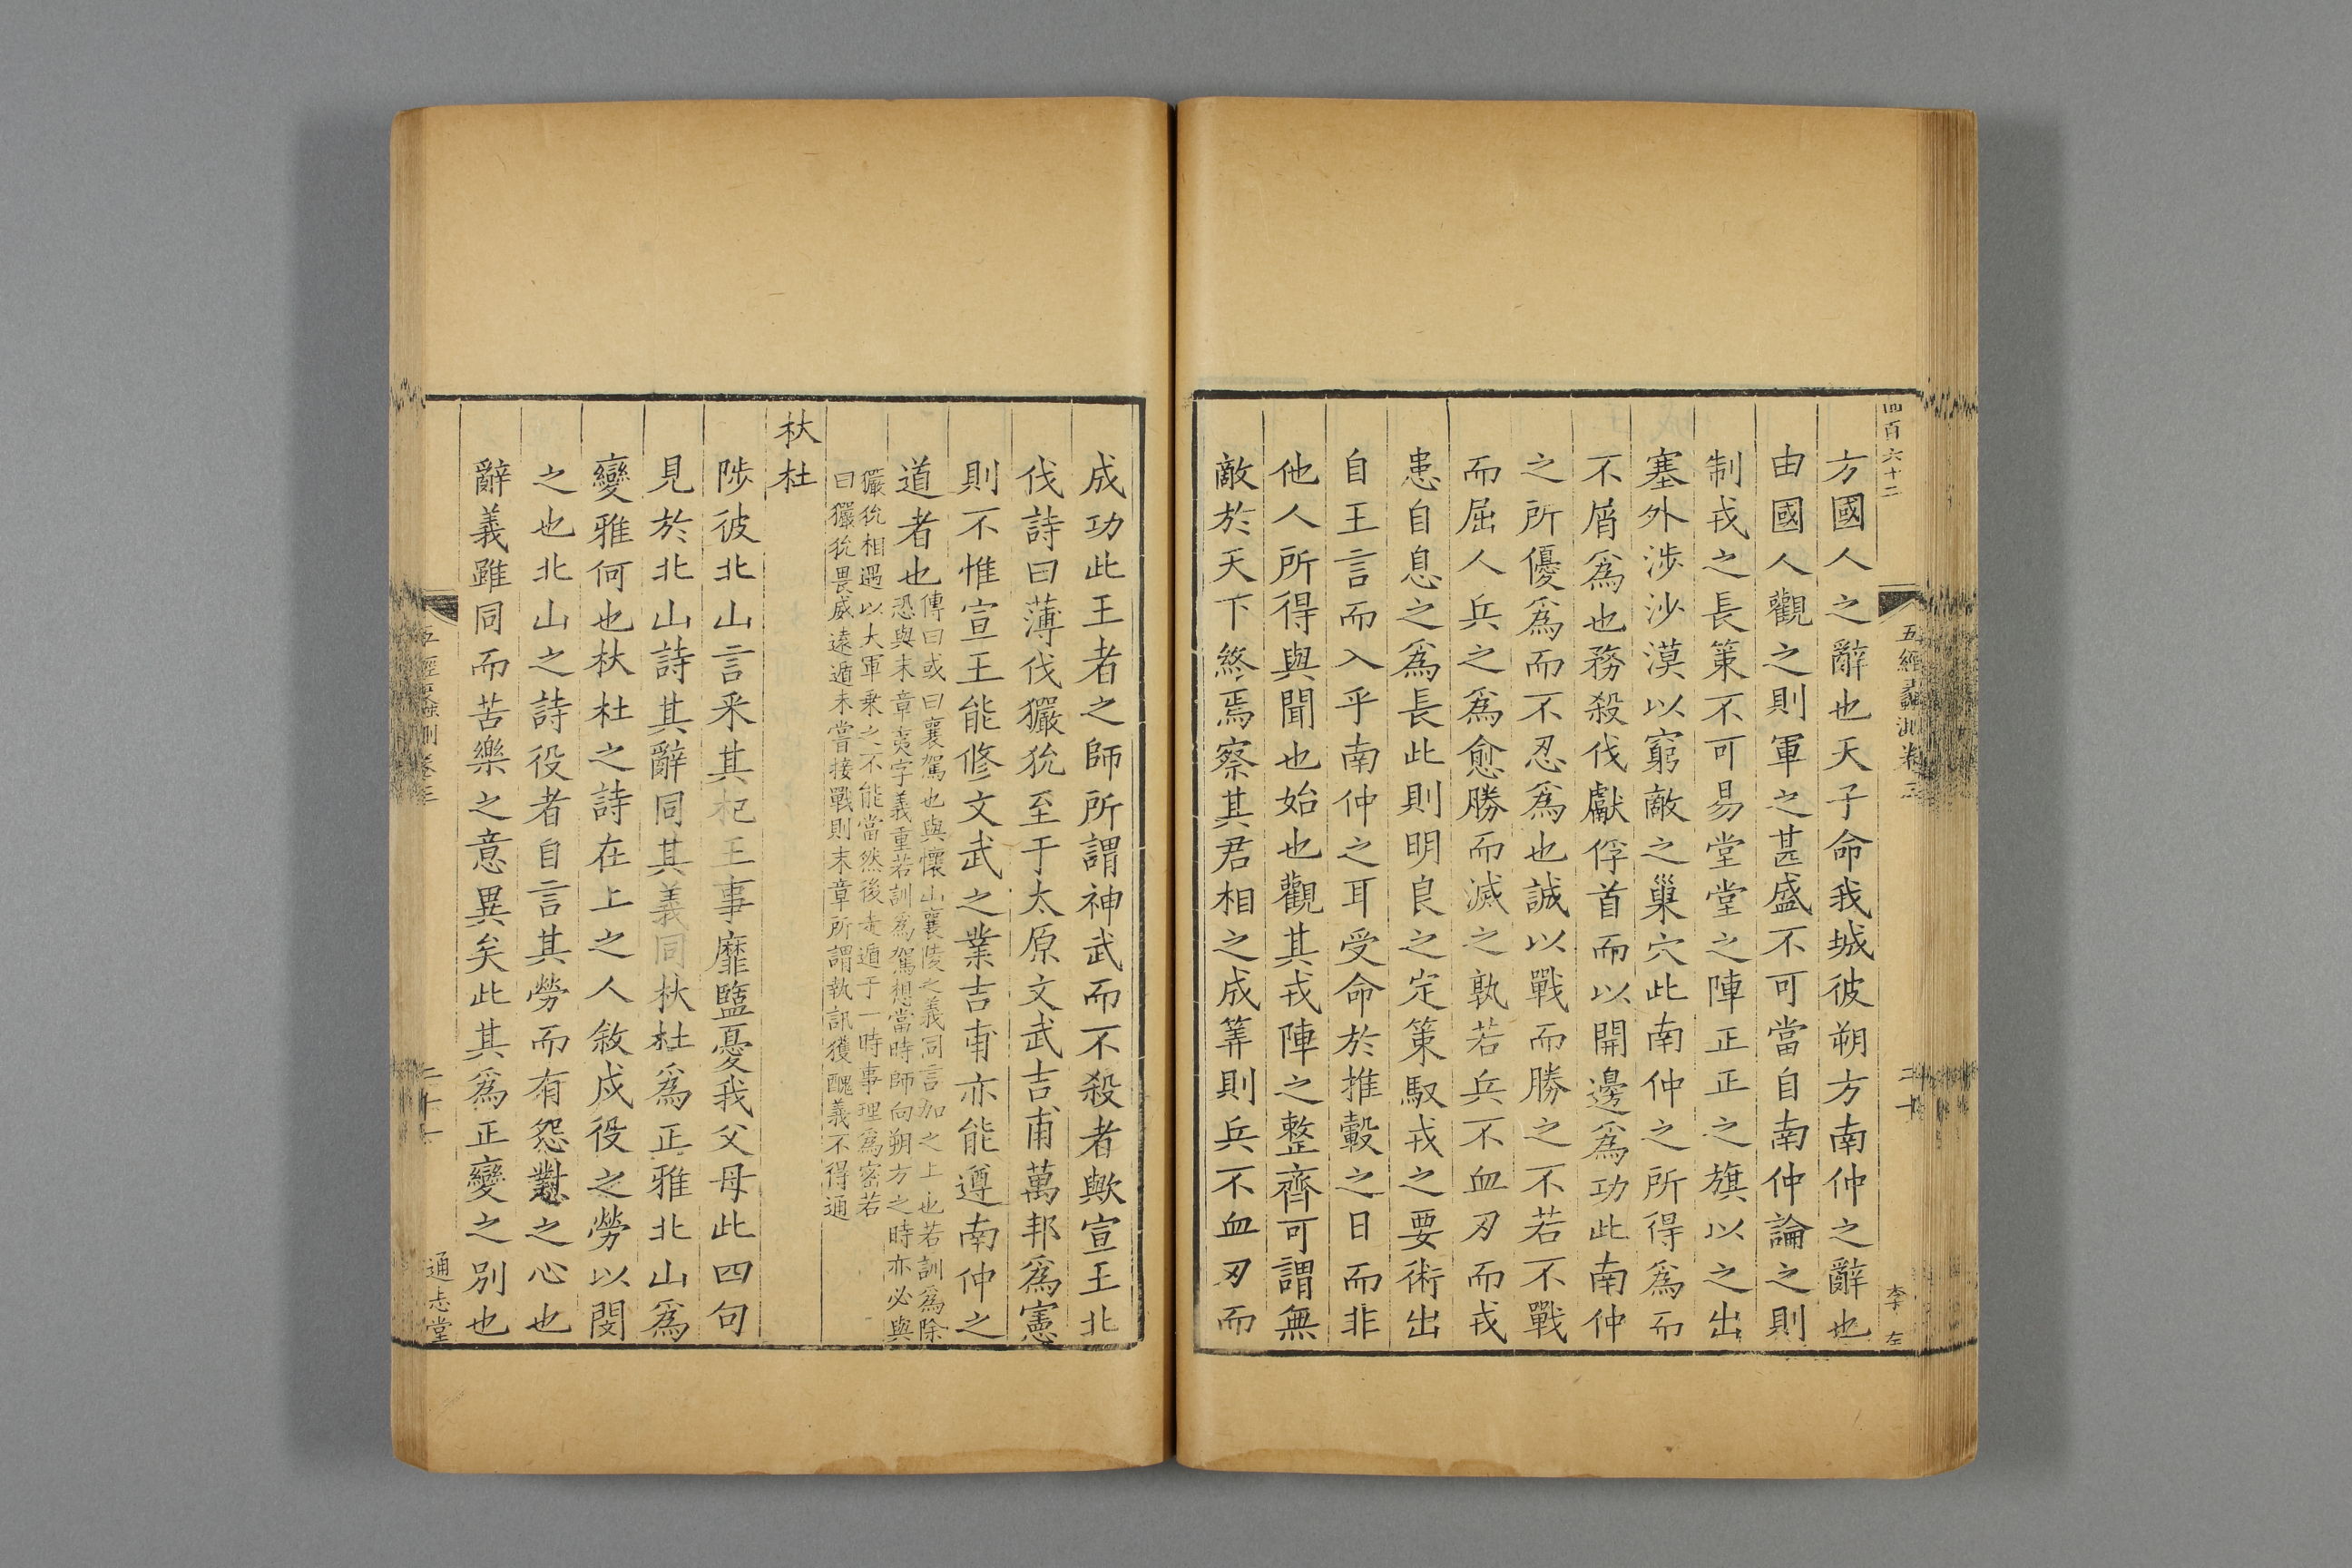 四百六十二
方國人之辭也天子命我城彼朔方南仲之辭也
由國人觀之則軍之甚盛不可當自南仲論之則
制戎之長策不可易堂堂之陣正正之旗以之出
塞外涉沙漠以窮敵之巢穴此南仲之所得爲而
不屑爲也務殺伐獻俘首而以開邊爲功此南仲
之所優爲而不忍爲也誠以戰而勝之不若不戰
而屈人兵之爲愈勝而滅之孰若兵不血刃而戎
患自息之爲長此則明良之定策馭戎之要術出
自王言而入乎南仲之耳受命於推轂之日而非
他人所得與聞也始也觀其戎陣之整齊可謂無
敵於天下終焉察其君相之成筭則兵不血刃而
五經蠡測卷三
二十
李 左
成功此王者之師所謂神武而不殺者歟宣王北
伐詩曰薄伐玁狁至于太原文武吉甫萬邦爲憲
則不惟宣王能修文武之業吉甫亦能遵南仲之
道者也傳曰或曰襄駕也與懷山襄陵之義同言加之上也若訓爲除
恐與末章夷字義重若訓爲駕想當時師向朔方之時亦必與
玁狁相遇以大軍乘之不能當然後走遁于一時事理爲密若
曰玁狁畏威遠遁未嘗接戰則末章所謂執訊獲醜義不得通
杕杜
陟彼北山言采其杞王事靡盬憂我父母此四句
見於北山詩其辭同其義同杕杜爲正雅北山爲
變雅何也杕杜之詩在上之人敘戍役之勞以閔
之也北山之詩役者自言其勞而有怨懟之心也
辭義雖同而苦樂之意異矣此其爲正變之別也
五經蠡測卷三
二十一
通志堂